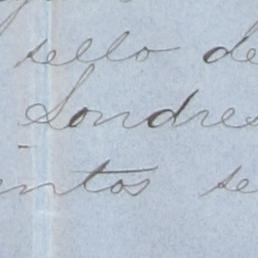 sello de
Londres
entos se